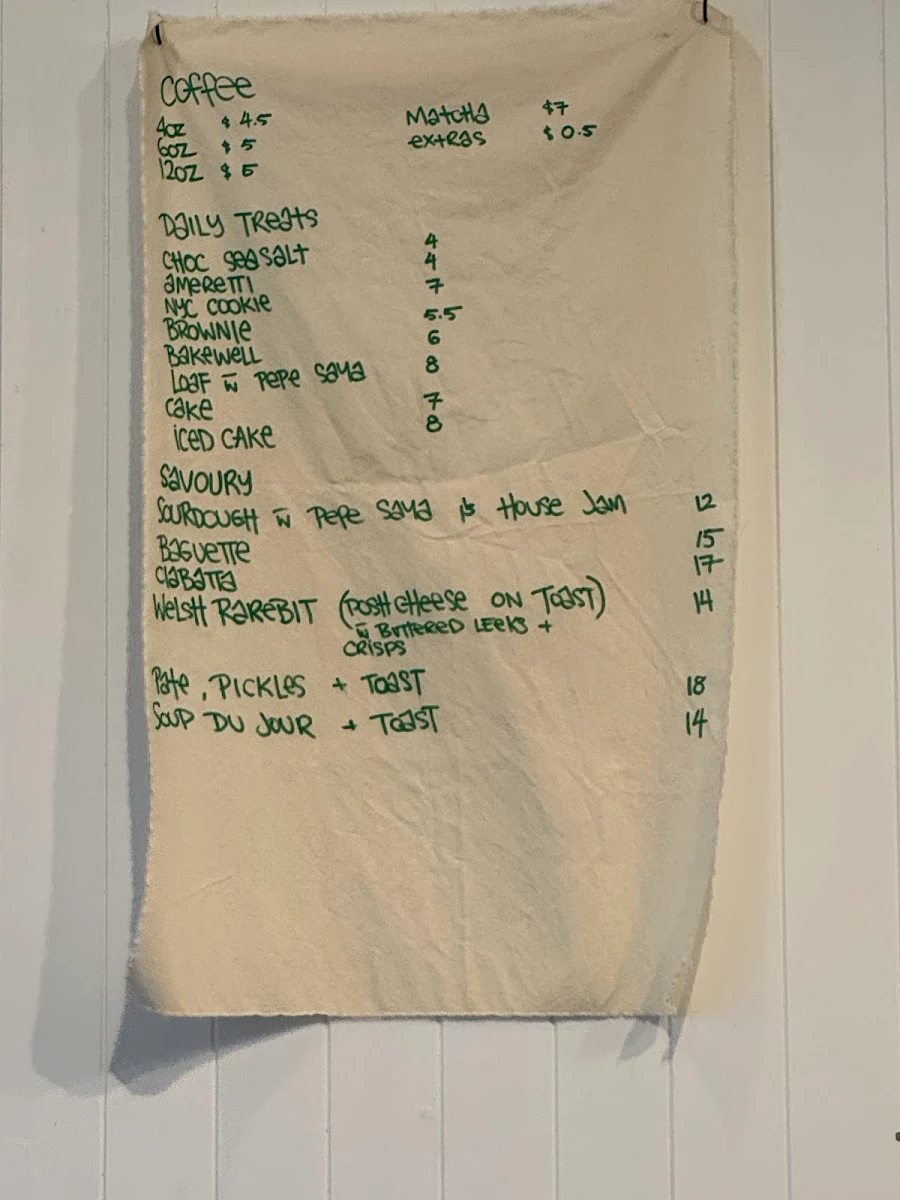 Coffee
4oz $4.5 Matcha $7
6oz $5 extras $0.5
12oz $5
DAILY TREATS
CHOC SEASALT 4
AMERETTI 4
NYC COOKIE 7
BROWNIE 5.5
BAKEWELL 6
LOAF w̄ PEPE SAYA 8
CAKE 7
ICED CAKE 8
SAVOURY
SOURDOUGH w̄ PEPE SAYA & HOUSE JAM 12
BAGUETTE 15
CIABATTA 17
WELSH RAREBIT (POSH CHEESE ON TOAST) 14
w̄ BUTTERED LEEKS +
CRISPS
Pate, PICKLES + TOAST 18
SOUP DU JOUR + TOAST 14